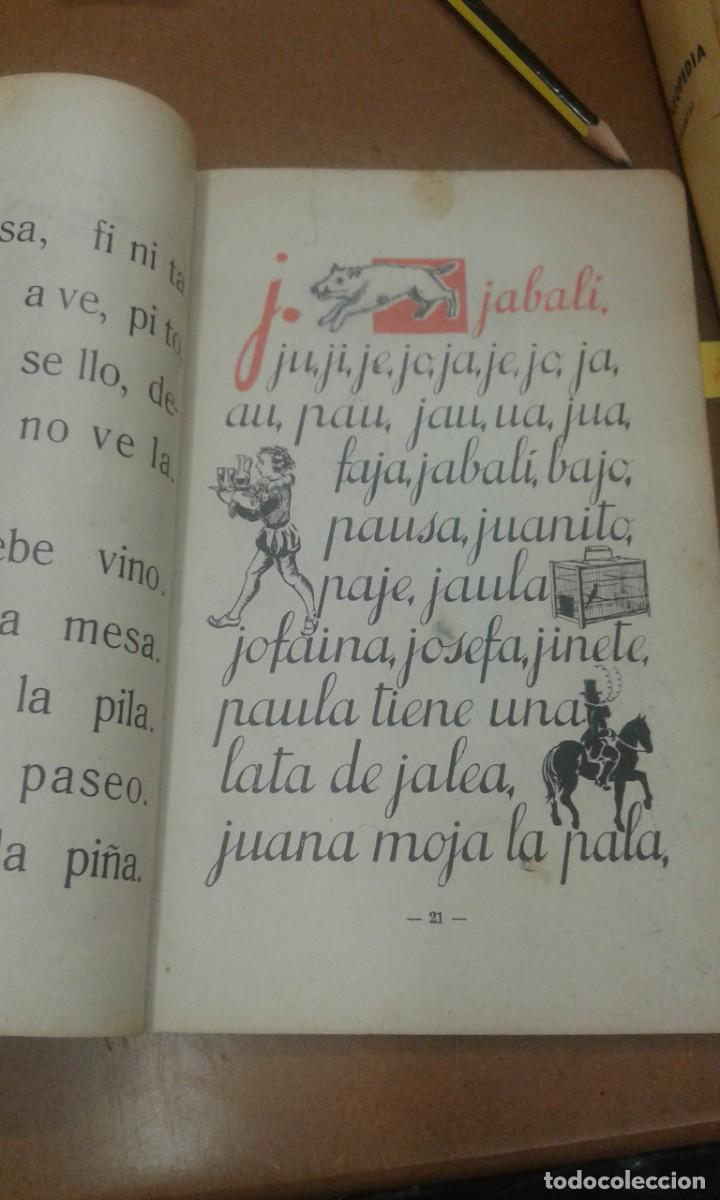 sa, fi ni ta
a ve, pi to,
se llo, de-
no ve la.
ebe vino.
a mesa.
la pila.
paseo.
la piña.
j. jabalí.
ju, ji, je, jo, ja, je, jo, ja,
au, pau, jau, ua, jua,
faja, jabalí, bajo,
pausa, juanito,
paje, jaula
jofaina, josefa, jinete,
paula tiene una
lata de jalea,
juana moja la pala,
— 21 —
LOPEDIA
todocoleccion